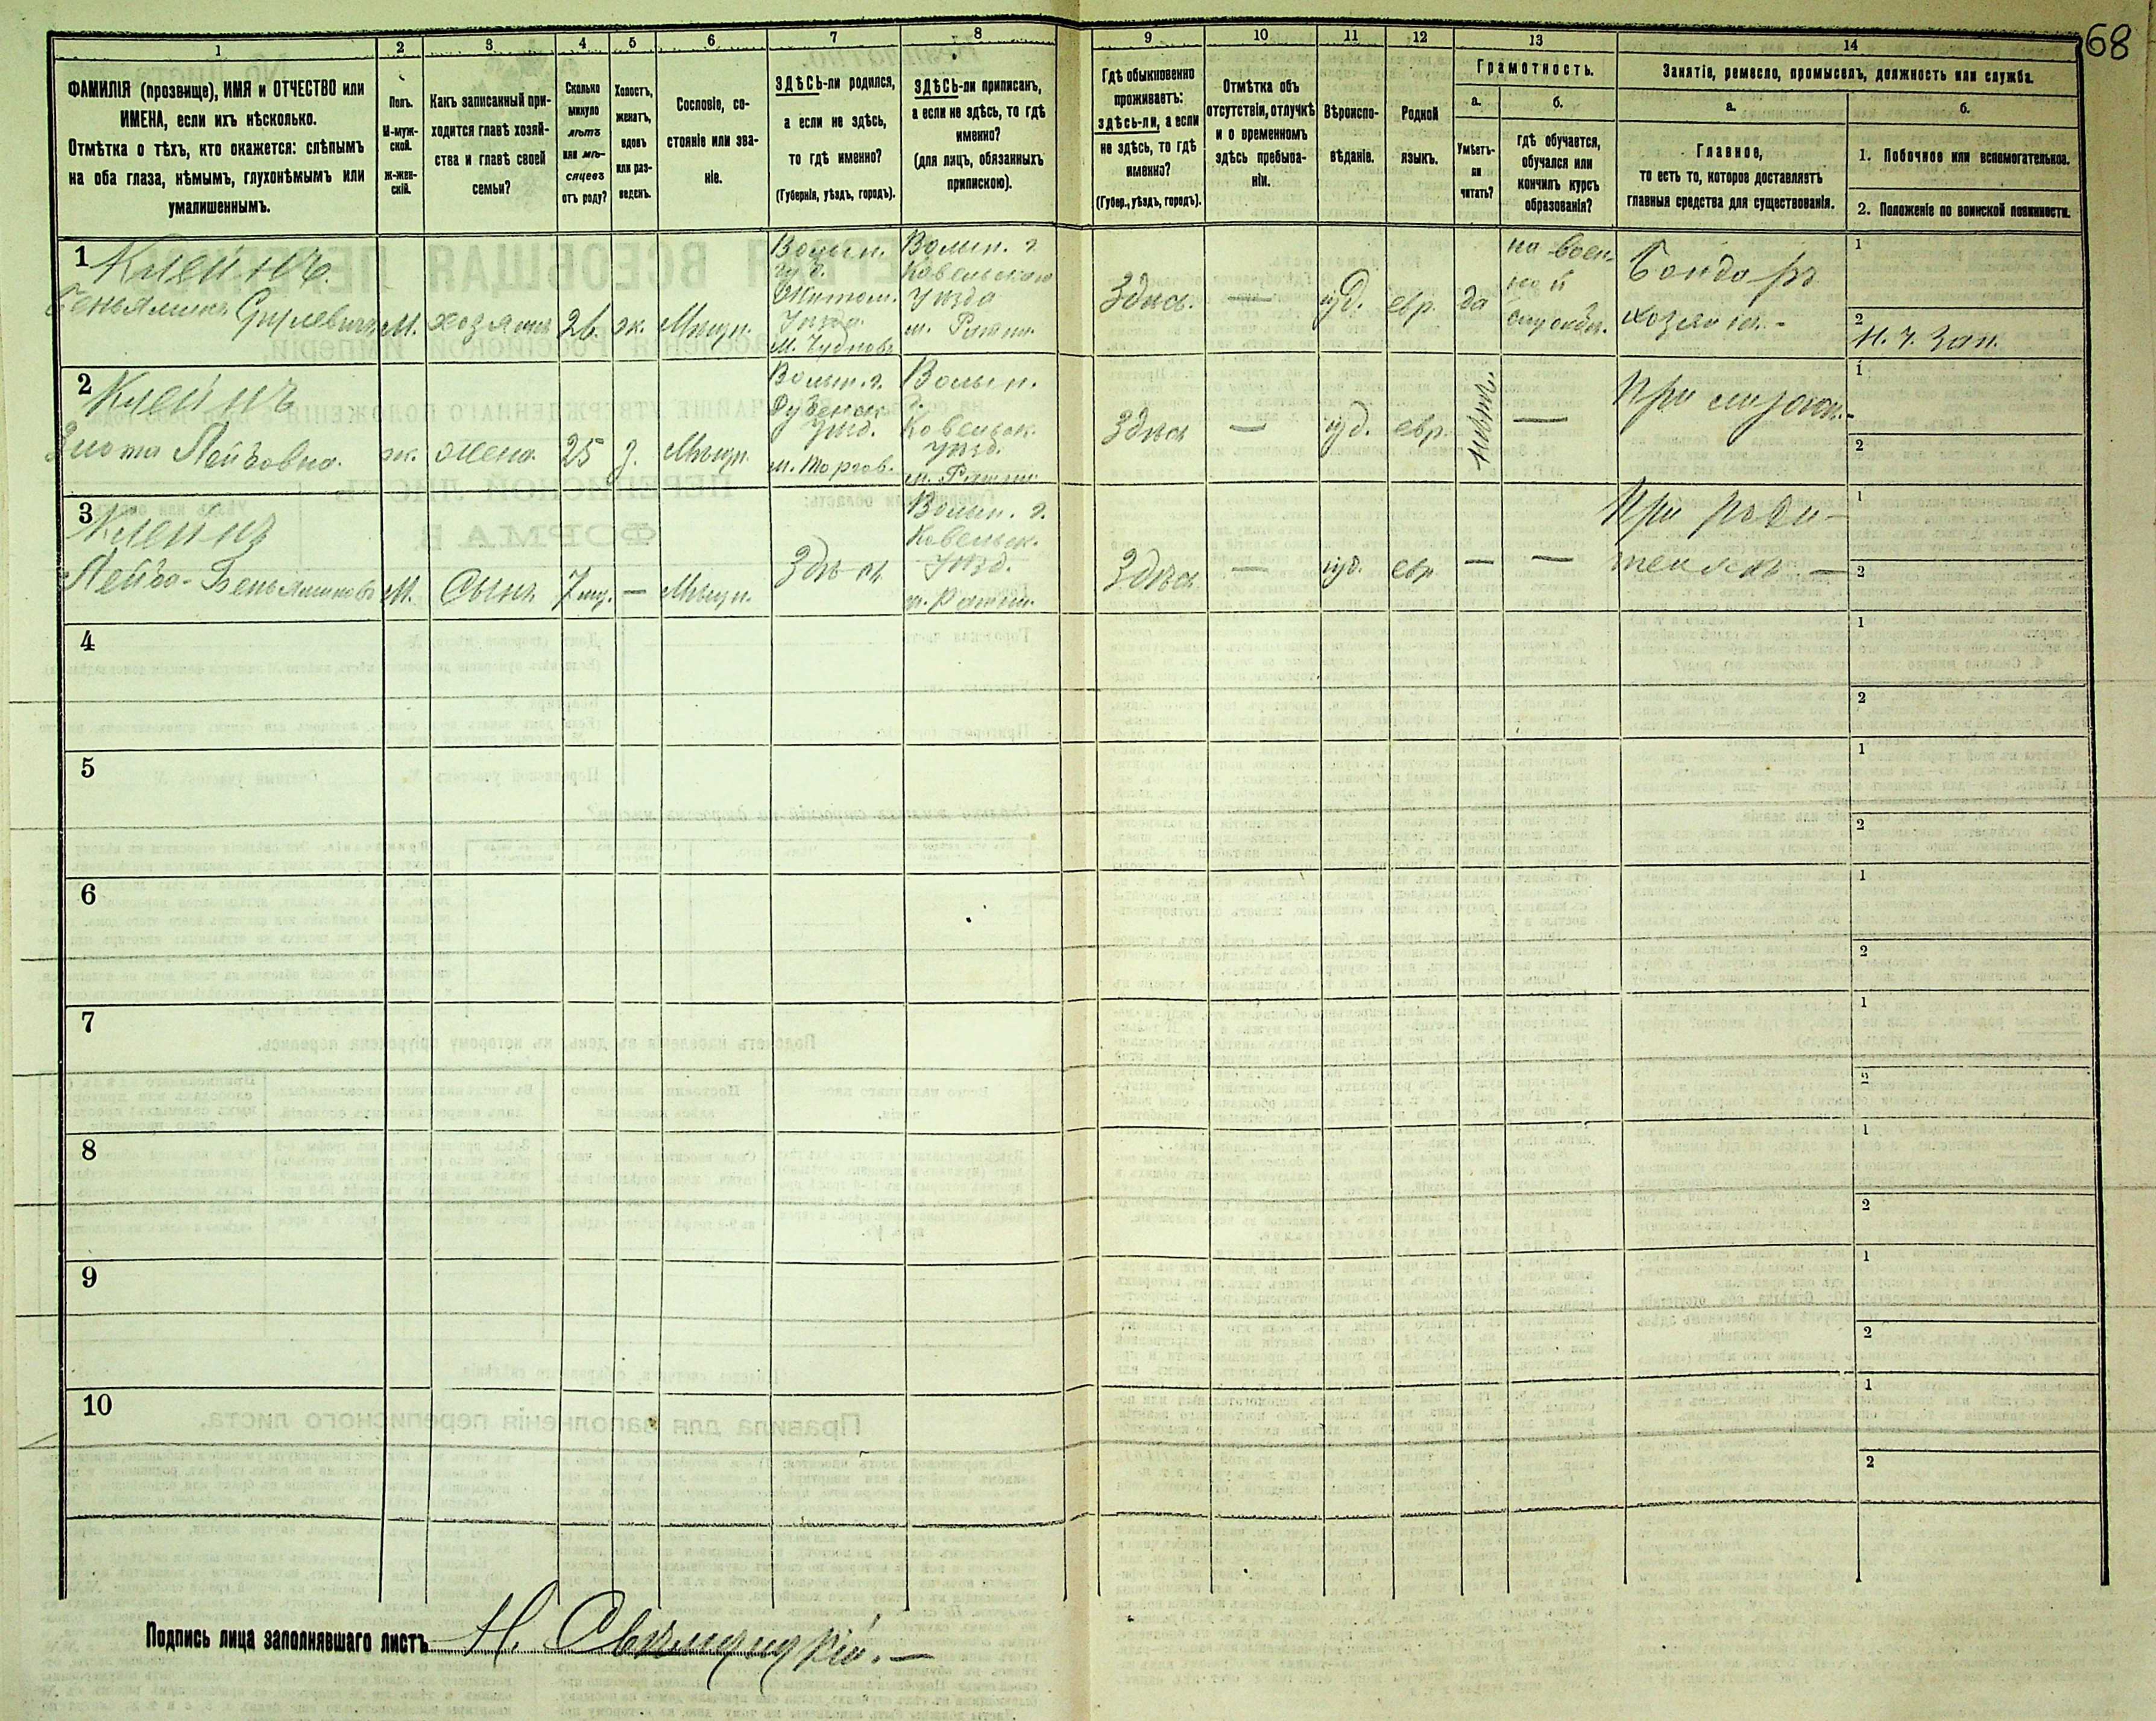 68
1
2
3
4
5
6
7
8
9
10
11
12
13
14
ФАМИЛІЯ (прозвище), ИМЯ и ОТЧЕСТВО или
ИМЕНА, если ихъ нѣсколько.
Отмѣтка о тѣхъ, кто окажется: слѣпымъ
на оба глаза, нѣмымъ, глухонѣмымъ или
умалишеннымъ.
Полъ.
М-муж-
ской.
ж-жен-
скій.
Какъ записанный при-
ходится главѣ хозяй-
ства и главѣ своей
семьи?
Сколько
минуло
лѣтъ
или мѣ-
сяцевъ
отъ роду?
Холостъ,
женатъ,
вдовъ
или раз-
веденъ.
Сословіе, со-
стояніе или зва-
ніе.
ЗДѢСЬ-ли родился,
а если не здѣсь,
то гдѣ именно?
(Губернія, уѣздъ, городъ).
ЗДѢСЬ-ли приписанъ,
а если не здѣсь, то гдѣ
именно?
(для лицъ, обязанныхъ
припискою).
Гдѣ обыкновенно
проживаетъ:
здѣсь-ли, а если
не здѣсь, то гдѣ
именно?
(Губер., уѣздъ, городъ).
Отмѣтка объ
отсутствіи, отлучкѣ
и о временномъ
здѣсь пребыва-
ніи.
Вѣроиспо-
вѣданіе.
Родной
языкъ.
Грамотность.
а.
Умѣетъ-
ли
читать?
б.
гдѣ обучается,
обучался или
кончилъ курсъ
образованія?
Занятіе, ремесло, промыселъ, должность или служба.
а.
Главное,
то есть то, которое доставляетъ
главныя средства для существованія.
б.
1. Побочное или вспомогательное.
2. Положеніе по воинской повинности.
1
Клейнъ
М.
хозяинъ
26
ж.
Мѣщн.
Волын.
губ.
Житом.
М. Чудновъ
Волын. г.
Ковельскаго
Уѣзда
м. Ратни
Здѣсь.
—
іуд.
евр.
да
на воен-
ной
службѣ.
Бондарь
хозяинъ.-
1
2
2
Клейнъ
Злота Лейбовна.
ж.
жена
25
з.
Мѣщн.
Волын. г.
Дубенск.
Уѣзд.
Волын.
г.
Ковельск.
Уѣзд.
м. Ратни
Здѣсь
—
іуд.
евр.
—
При
1
2
3
Клейнъ
Лейба-Беньяминовъ
М.
Сынъ
7
—
Мѣщн.
Здѣсь
Волын. г.
Ковельск.
Уѣзд.
м. Ратни.
Здѣсь
—
іуд.
евр
—
—
При роди-
теляхъ —
1
2
4
1
2
5
1
2
6
1
2
7
1
2
8
1
2
9
1
2
10
1
2
Подпись лица заполнявшаго листъ